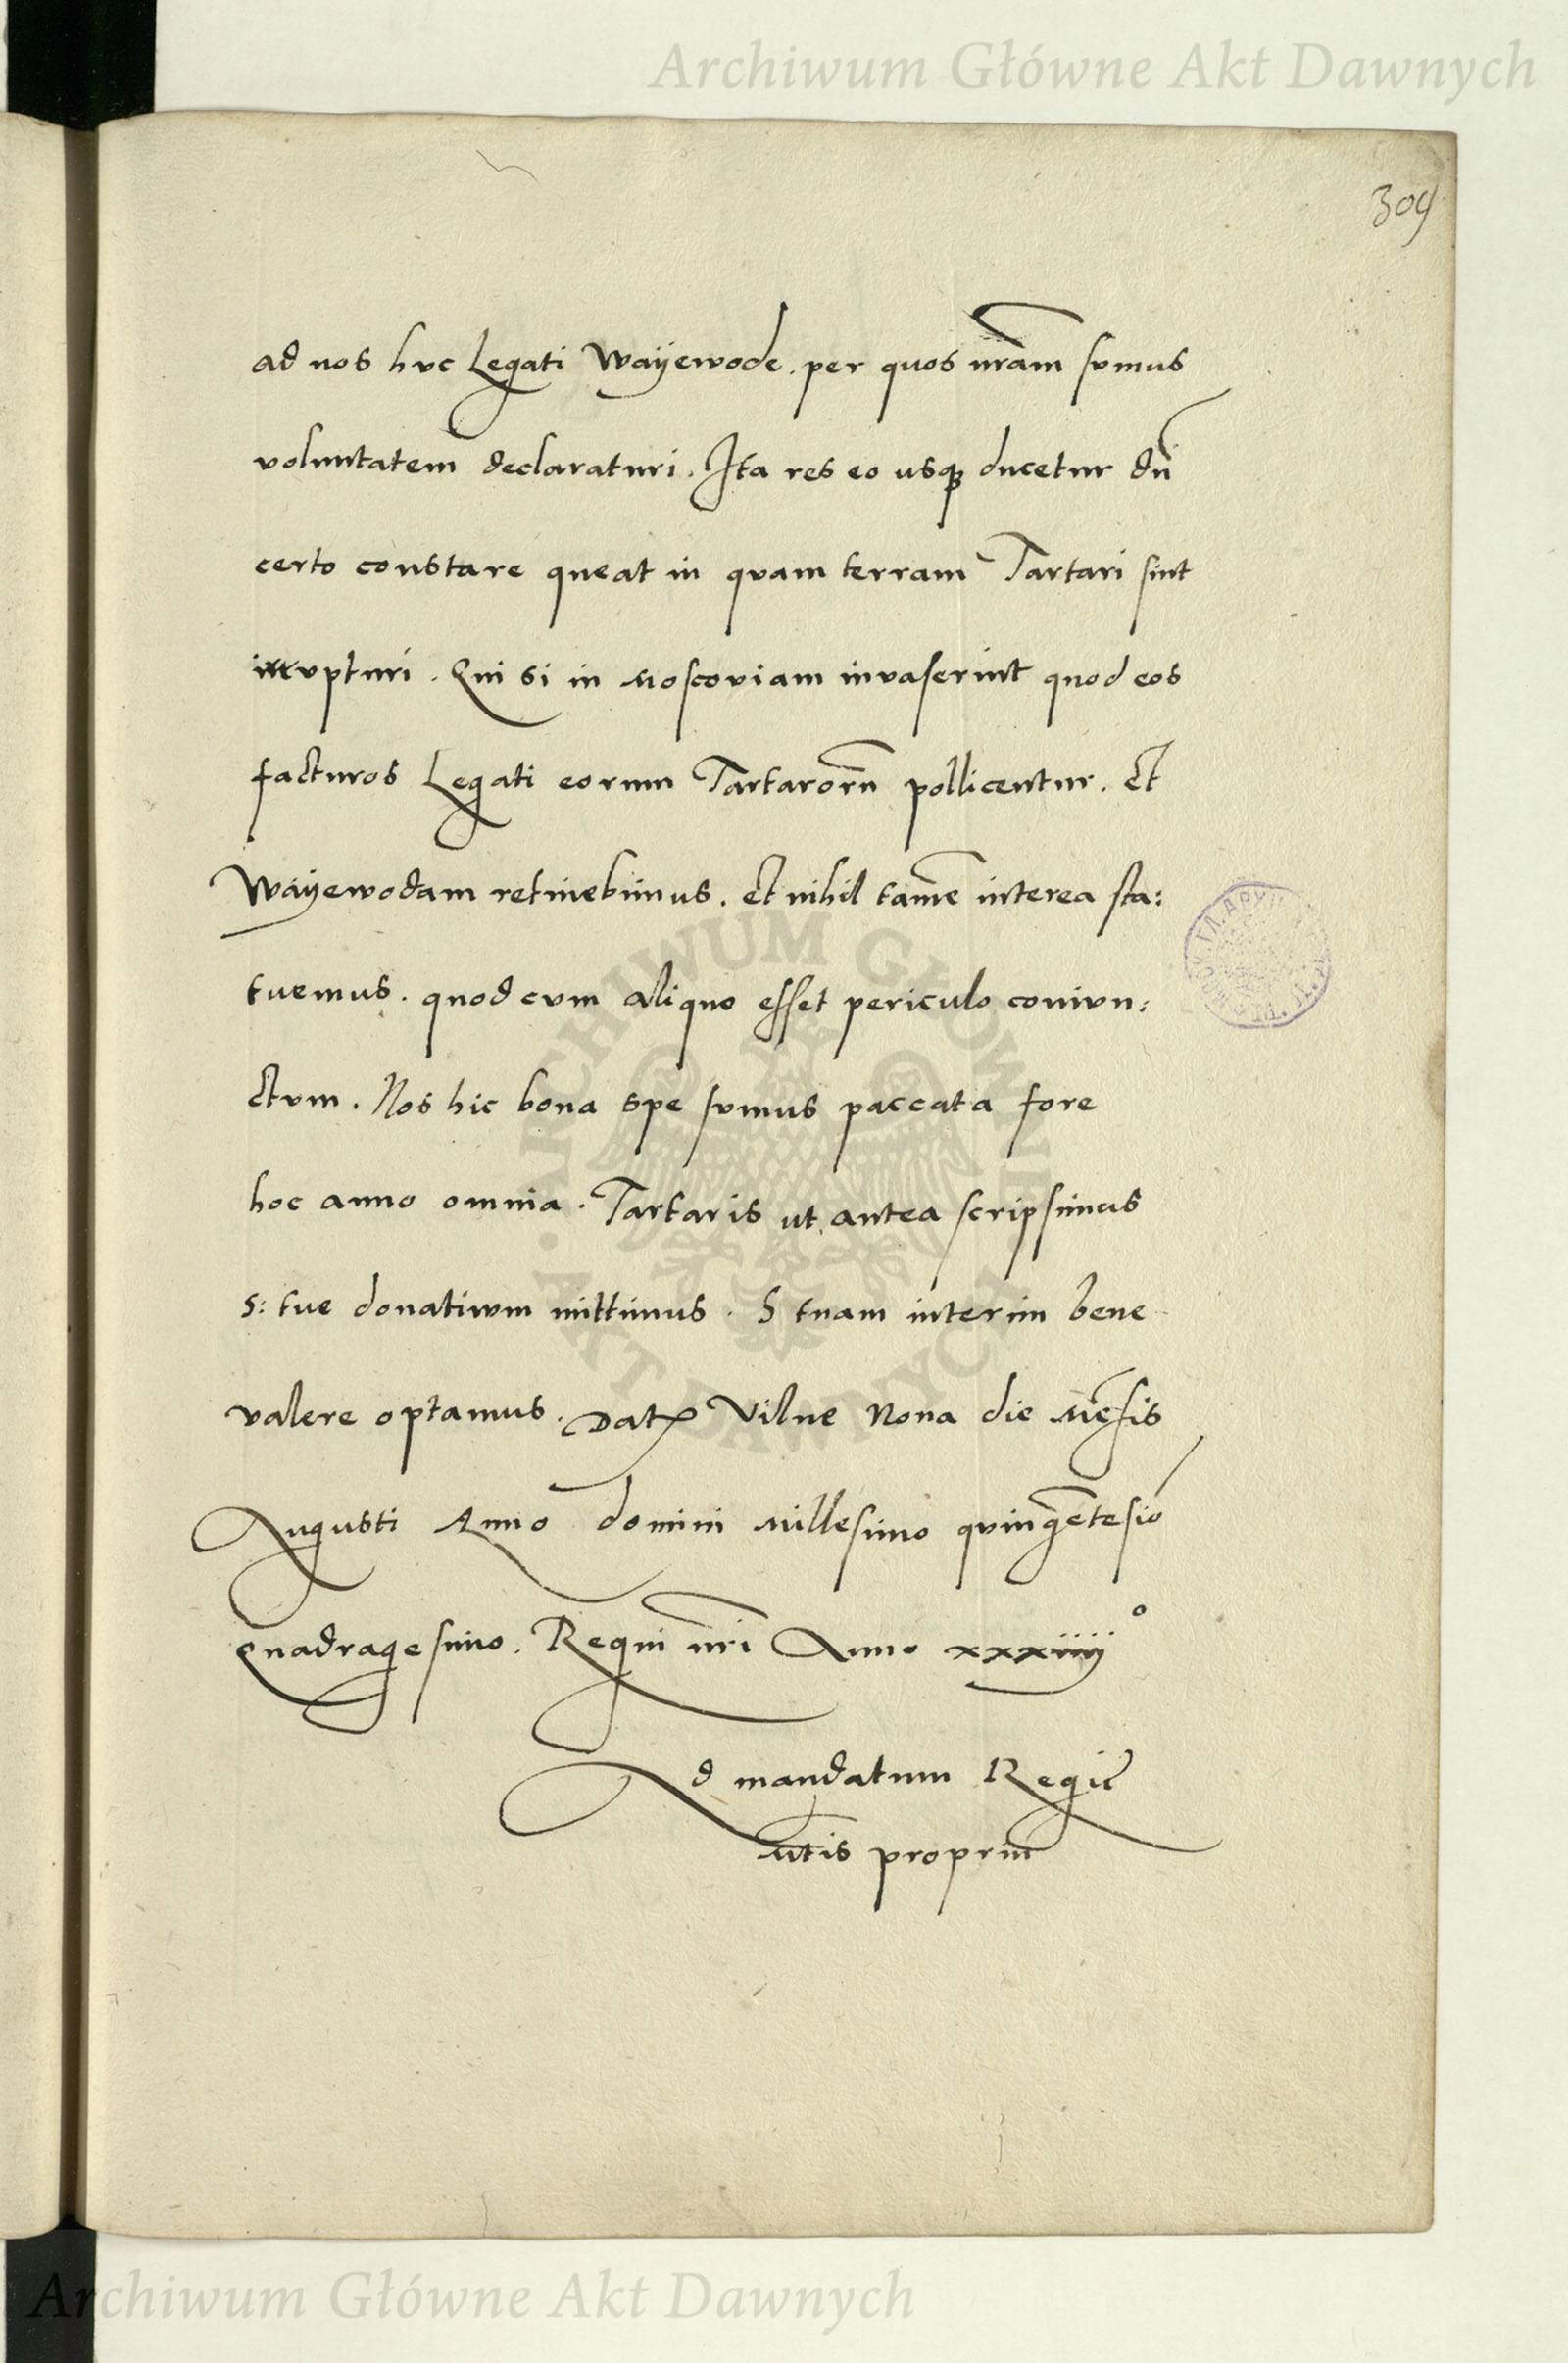 Archiwum Główne Akt Dawnych
309
ad nos hvc Legati Wayewode. per quos nram svmus
voluntatem declaraturi. Ita res eo usq ducetur dū
certo constare queat in qvam terram Tartari sint
irrvpturi. Qui si in Moscoviam invaserint quod eos
facturos Legati eorum Tartarorū pollicentur. Et
Wayewodam retinebimus. et nihil tamē interea sta:
tuemus. quod cvm aliquo esset periculo conivn:
ctvm. Nos hic bona spe svmus paccata fore
hoc anno omnia. Tartaris ut antea scripsimus
S: tue donativvm mittimus. S tuam interim bene
valere optamus. Dat Vilne Nona die Mēsis
Augusti Anno domini Millesimo qvingētesio
Quadragesimo. Regni nri Anno xxxiiij°
Ad mandatum Regie
Mtis proprium
ARCHIWUM GŁÓWNE
AKT DAWNYCH
Archiwum Główne Akt Dawnych